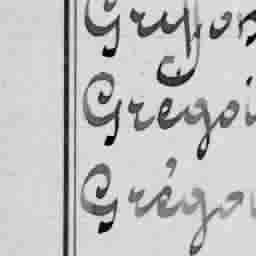 Gryfon
Gregoi
Régoi